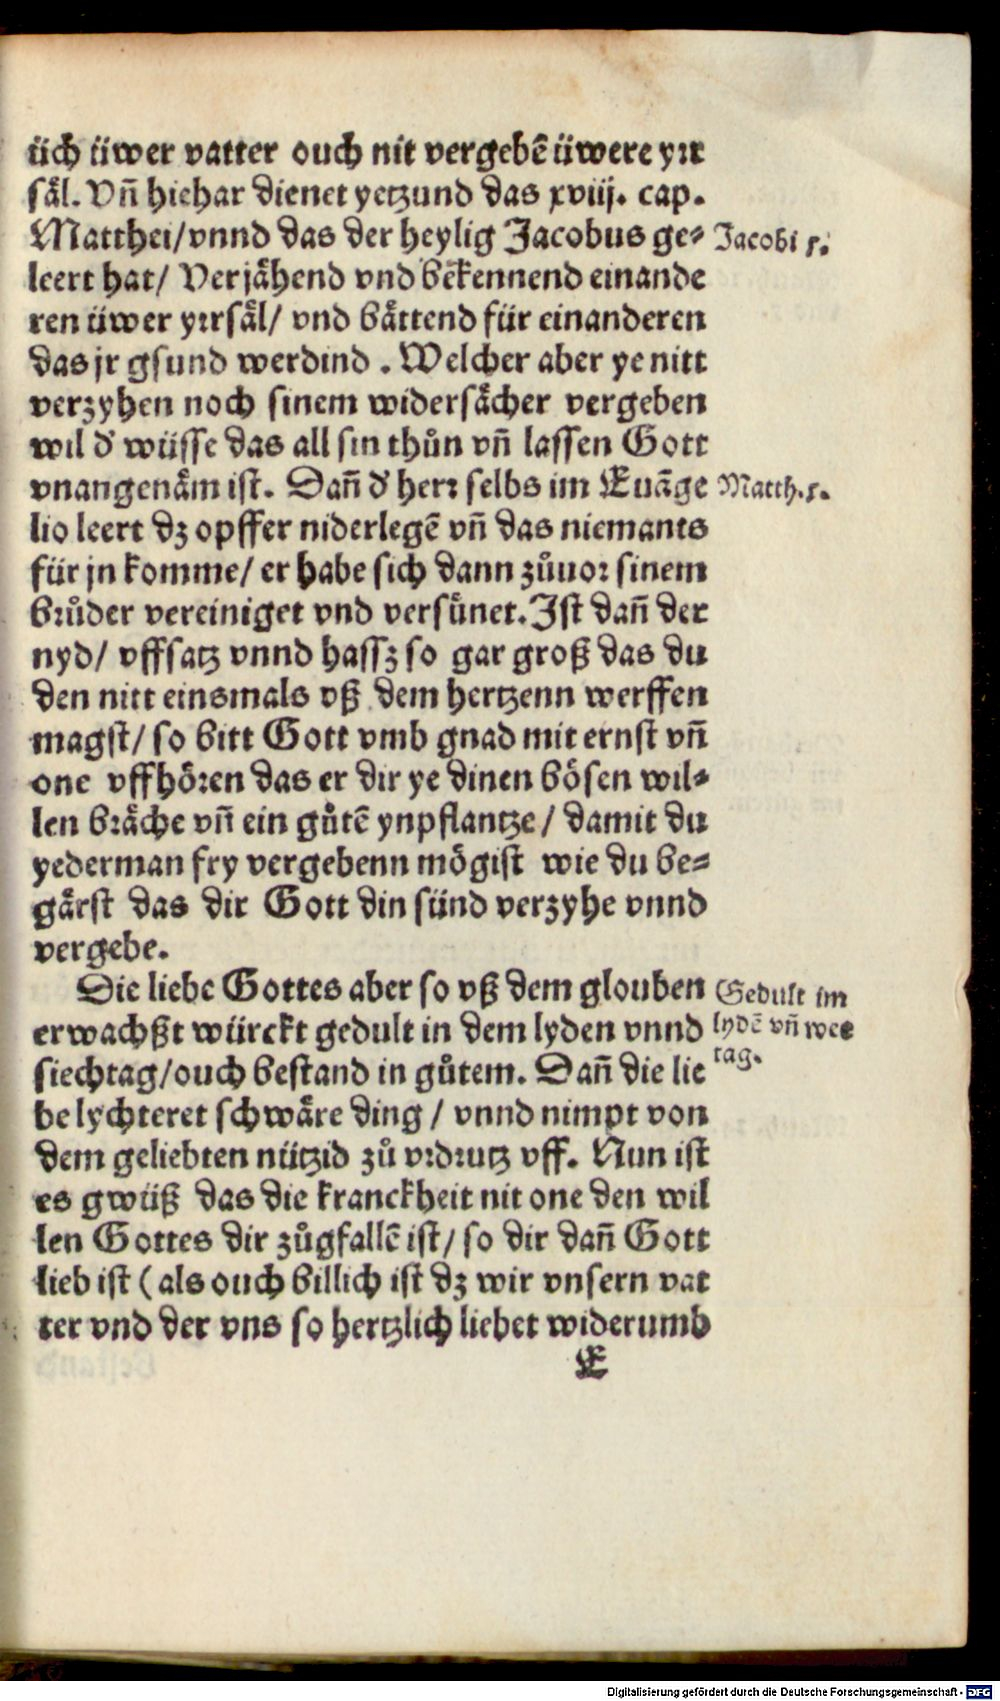 üch üwer vatter ouch nit vergebē üwere yrr
säl. Vñ hiehar dienet yetzund das xviij. cap.
Matthei/vnnd das der heylig Jacobus ge-
Jacobi 5.
leert hat/ Verjähend vnd bekennend einande
ren üwer yrrsäl/ vnd bättend für einanderen
das jr gsund werdind . Welcher aber ye nitt
verzyhen noch sinem widersächer vergeben
wil d' wüsse das all sin thůn vñ lassen Gott
vnangenäm ist. Dañ d' herr selbs im Euāge
Matth.5.
lio leert dz opffer niderlegē vñ das niemants
für jn komme/ er habe sich dann zůuor sinem
brůder vereiniget vnd versünet. Ist dañ der
nyd/ vffsatz vnnd hassz so gar groß das du
den nitt einsmals vß dem hertzenn werffen
magst/ so bitt Gott vmb gnad mit ernst vñ
one vffhören das er dir ye dinen bösen wil-
len bräche vñ ein gůtē ynpflantze/ damit du
yederman fry vergebenn mögist wie du be-
gärst das dir Gott din sünd verzyhe vnnd
vergebe.
Die liebe Gottes aber so vß dem glouben
Gedult im
lydē vñ wee
tag.
erwachßt würckt gedult in dem lyden vnnd
siechtag/ouch bestand in gůtem. Dañ die lie
be lychteret schwäre ding / vnnd nimpt von
dem geliebten nützid zů vrdrutz vff. Nun ist
es gwüß das die kranckheit nit one den wil
len Gottes dir zůgfallē ist/ so dir dañ Gott
lieb ist (als ouch billich ist dz wir vnsern vat
ter vnd der vns so hertzlich liebet widerumb
E
Digitalisierung gefördert durch die Deutsche Forschungsgemeinschaft - DFG